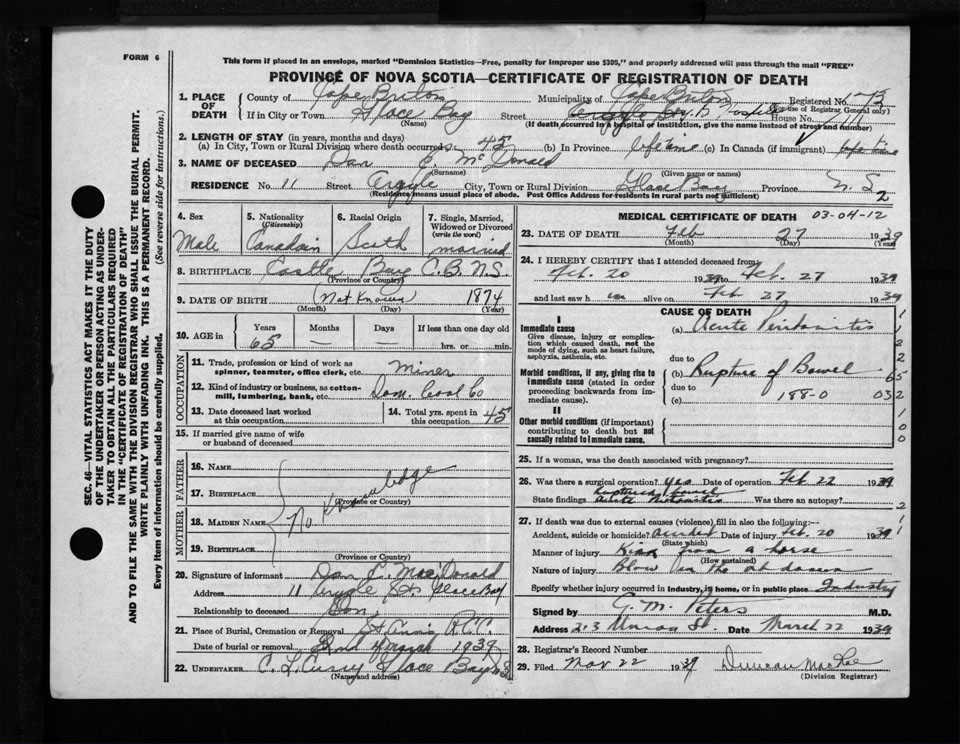 FORM 6
This form if placed in an envelope, marked "Dominion Statistics—Free, penalty for improper use $300," and properly addressed will pass through the mail "FREE"
PROVINCE OF NOVA SCOTIA—CERTIFICATE OF REGISTRATION OF DEATH
SEC. 46—VITAL STATISTICS ACT MAKES IT THE DUTY
OF THE UNDERTAKER OR PERSON ACTING AS UNDER-
TAKER TO OBTAIN ALL THE PARTICULARS REQUIRED
IN THE "CERTIFICATE OF REGISTRATION OF DEATH"
AND TO FILE THE SAME WITH THE DIVISION REGISTRAR WHO SHALL ISSUE THE BURIAL PERMIT.
WRITE PLAINLY WITH UNFADING INK. THIS IS A PERMANENT RECORD.
Every item of information should be carefully supplied. (See reverse side for instructions.)
1. PLACE OF DEATH
County of Cape Breton Municipality of Cape Breton Registered No.
(For use of Registrar General only)
If in City or Town Glace Bay Street Argyle House No. 11
(Name) (If death occurred in a hospital or institution, give the name instead of street and number)
2. LENGTH OF STAY (in years, months and days)
(a) In City, Town or Rural Division where death occurred 45 (b) In Province Life time (c) In Canada (if immigrant) Life time
3. NAME OF DECEASED Dan McDonald
(Surname) (Given name or names)
RESIDENCE No. 11 Street Argyle City, Town or Rural Division Glace Bay Province N.S.
(Residence means usual place of abode. Post Office Address for residents in rural parts not sufficient)
2
4. Sex Male
5. Nationality (Citizenship) Canadain
6. Racial Origin Scoth
7. Single, Married, Widowed or Divorced (write the word) married
8. BIRTHPLACE Castle Bay C.B. N.S.
(Province or Country)
9. DATE OF BIRTH (Not Known) 1874
(Month) (Day) (Year)
10. AGE in Years 65 Months — Days — If less than one day old hrs. or min.
OCCUPATION
11. Trade, profession or kind of work as spinner, teamster, office clerk, etc. miner
12. Kind of industry or business, as cotton-mill, lumbering, bank, etc. Dom. Coal Co
13. Date deceased last worked at this occupation
14. Total yrs. spent in this occupation 45
15. If married give name of wife or husband of deceased
FATHER
16. NAME
17. BIRTHPLACE
(Province or Country)
MOTHER
18. MAIDEN NAME
19. BIRTHPLACE
(Province or Country)
No Knowledge
20. Signature of informant Dan C. MacDonald
Address 11 Argyle St. Glace Bay
Relationship to deceased Son
21. Place of Burial, Cremation or Removal St Anns R.C.C.
Date of burial or removal 2nd March 1939
22. UNDERTAKER C. L. Curry Glace Bay N.S.
(Name and address)
MEDICAL CERTIFICATE OF DEATH 03-04-12
23. DATE OF DEATH Feb 27 1939
(Month) (Day) (Year)
24. I HEREBY CERTIFY that I attended deceased from
Feb. 20 1939 to Feb. 27 1939
and last saw h im alive on Feb 27 1939
CAUSE OF DEATH
I
Immediate cause (a) Acute Peritonitis
Give disease, injury or complication which caused death, not the mode of dying, such as heart failure, asphyxia, asthenia, etc.
due to
Morbid conditions, if any, giving rise to immediate cause (stated in order proceeding backwards from immediate cause). (b) Rupture of Bowel
due to
(c) 188-0
II
Other morbid conditions (if important) contributing to death but not causally related to immediate cause.
1
1
2
2
65
032
1
0
0
25. If a woman, was the death associated with pregnancy?
26. Was there a surgical operation? Yes Date of operation Feb 22 1939
State findings Ruptured bowel Acute Peritonitis Was there an autopsy?
27. If death was due to external causes (violence) fill in also the following:—
Accident, suicide or homicide? Date of injury Feb. 20 1939
(State which)
Manner of injury Kick from a horse
(How sustained)
Nature of injury Blow in the abdomen
Specify whether injury occurred in industry, in home, or in public place Industry
Signed by G. M. Peters M.D.
Address 213 Union St. Date March 22 1939
28. Registrar's Record Number
29. Filed 22 1939 Duncan MacRae
(Division Registrar)